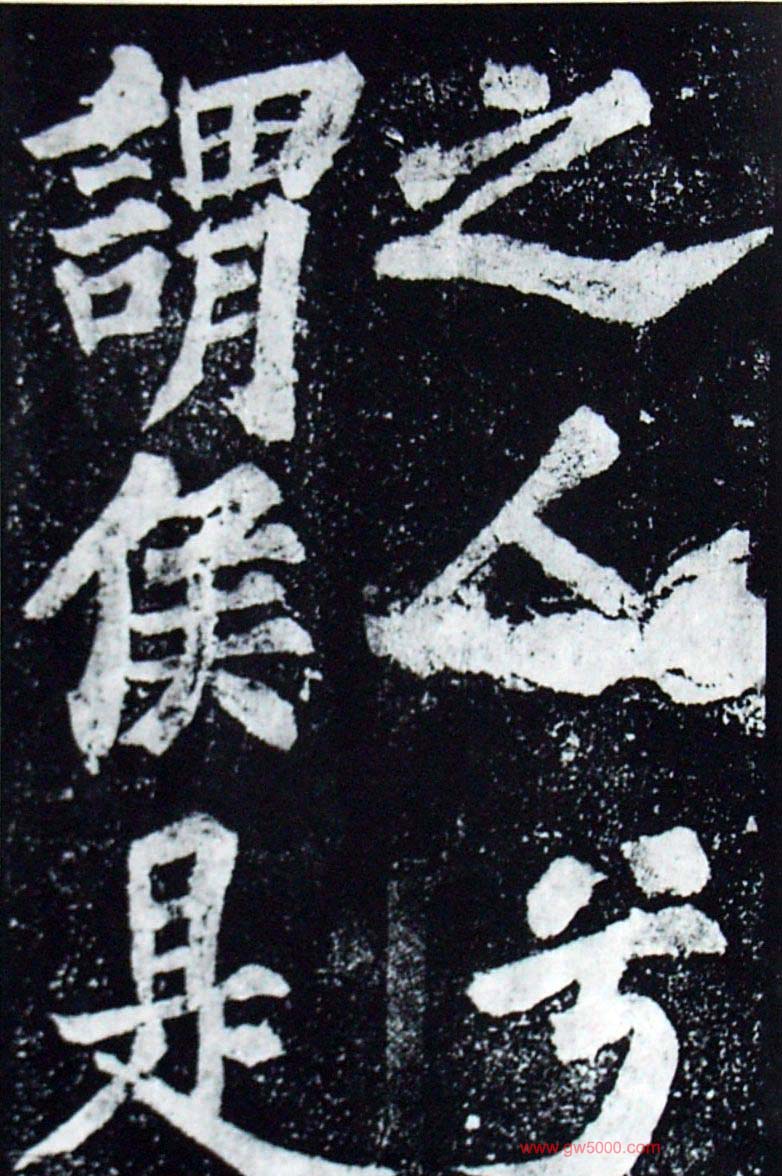 之人兮
謂侯是
www.gw5000.com